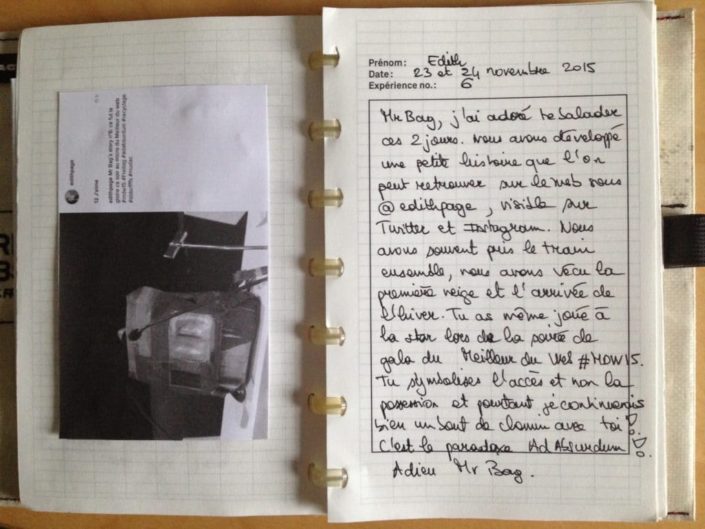 edithpage
13 J'aime
edithpage Mr Bag's story n°6: ce fut la
Prénom: Edith
Date: 23 et 24 novembre 2015
Expérience no.: 6
Mr Bag, j'ai adoré te balader
ces 2 jours. Nous avons développé
une petite histoire que l'on
peut retrouver sur le web sous
@edithpage, visible sur
Twitter et Instagram. Nous
avons souvent pris le train
ensemble, nous avons vécu la
première neige et l'arrivée de
l'hiver. Tu as même joué à
la star lors de la soirée de
gala du Meilleur du Web #MDW15.
Tu symbolises l'accès et non la
possession et pourtant, je continuerais
bien un bout de chemin avec toi!
C'est le paradoxe Ad Absurdum!
Adieu Mr Bag.